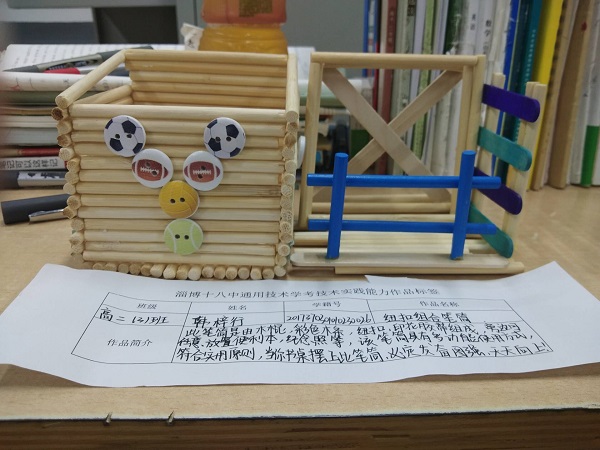 淄博十八中通用技术学考技术实践能力作品标签
班级 姓名 学籍号 作品名称
高二(3)班 韩梓行 纽扣组合笔筒
作品简介
此笔筒是由木棍,彩色木条,纽扣,印花胶带组成,笔边可
任意放置便利本,纪念照等,该笔筒具有多功能使用方式,
符合实用原则,当你书桌摆上此笔筒,必定发奋图强,天天向上